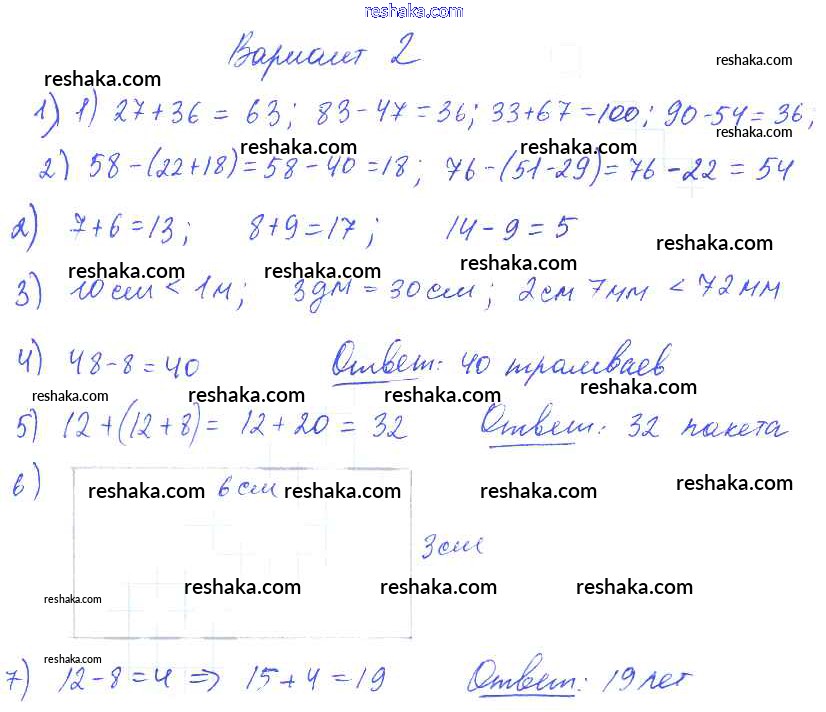 reshaka.com
Вариант 2
reshaka.com reshaka.com
1) 1) 27+36 = 63; 83-47=36; 33+67=100; 90-54=36;
reshaka.com reshaka.com reshaka.com
2) 58-(22+18)=58-40=18; 76-(51-29)=76-22=54
2) 7+6=13; 8+9=17; 14-9=5
reshaka.com reshaka.com reshaka.com reshaka.com
3) 10см < 1м; 3дм = 30см; 2см 7мм < 72мм
4) 48-8=40 Ответ: 40 трамваев
reshaka.com reshaka.com reshaka.com reshaka.com
5) 12+(12+8)= 12+20=32 Ответ: 32 пакета
6)
reshaka.com 6см reshaka.com reshaka.com reshaka.com
3см
reshaka.com reshaka.com reshaka.com
reshaka.com
reshaka.com
7) 12-8=4 ⇒ 15+4=19 Ответ: 19 лет
reshaka.com